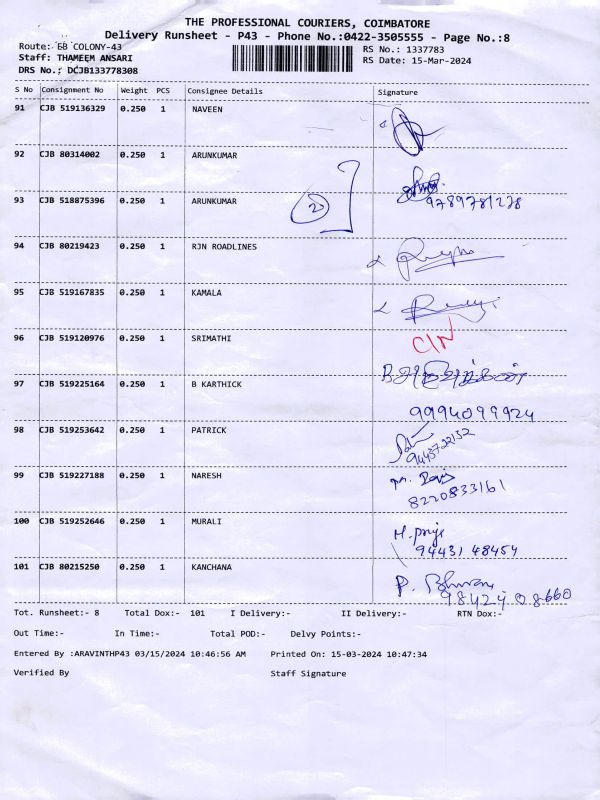 THE PROFESSIONAL COURIERS, COIMBATORE
Delivery Runsheet - P43 - Phone No.:0422-3505555 - Page No.:8
Route: EB COLONY-43
RS No.: 1337783
Staff: THAMEEM ANSARI
RS Date: 15-Mar-2024
DRS No.: DCJB133778308
S No Consignment No Weight PCS Consignee Details Signature
91 CJB 519136329 0.250 1 NAVEEN
92 CJB 80314002 0.250 1 ARUNKUMAR
93 CJB 518875396 0.250 1 ARUNKUMAR 2 9789781238
94 CJB 80219423 0.250 1 RJN ROADLINES
95 CJB 519167835 0.250 1 KAMALA
96 CJB 519120976 0.250 1 SRIMATHI C/N
97 CJB 519225164 0.250 1 B KARTHICK
9994099924
98 CJB 519253642 0.250 1 PATRICK
9443722132
99 CJB 519227188 0.250 1 NARESH
8220833161
100 CJB 519252646 0.250 1 MURALI M. priya
94431 48454
101 CJB 80215250 0.250 1 KANCHANA
98424 08660
Tot. Runsheet:- 8 Total Dox:- 101 I Delivery:- II Delivery:- RTN Dox:-
Out Time:- In Time:- Total POD:- Delvy Points:-
Entered By :ARAVINTHP43 03/15/2024 10:46:56 AM Printed On: 15-03-2024 10:47:34
Verified By Staff Signature